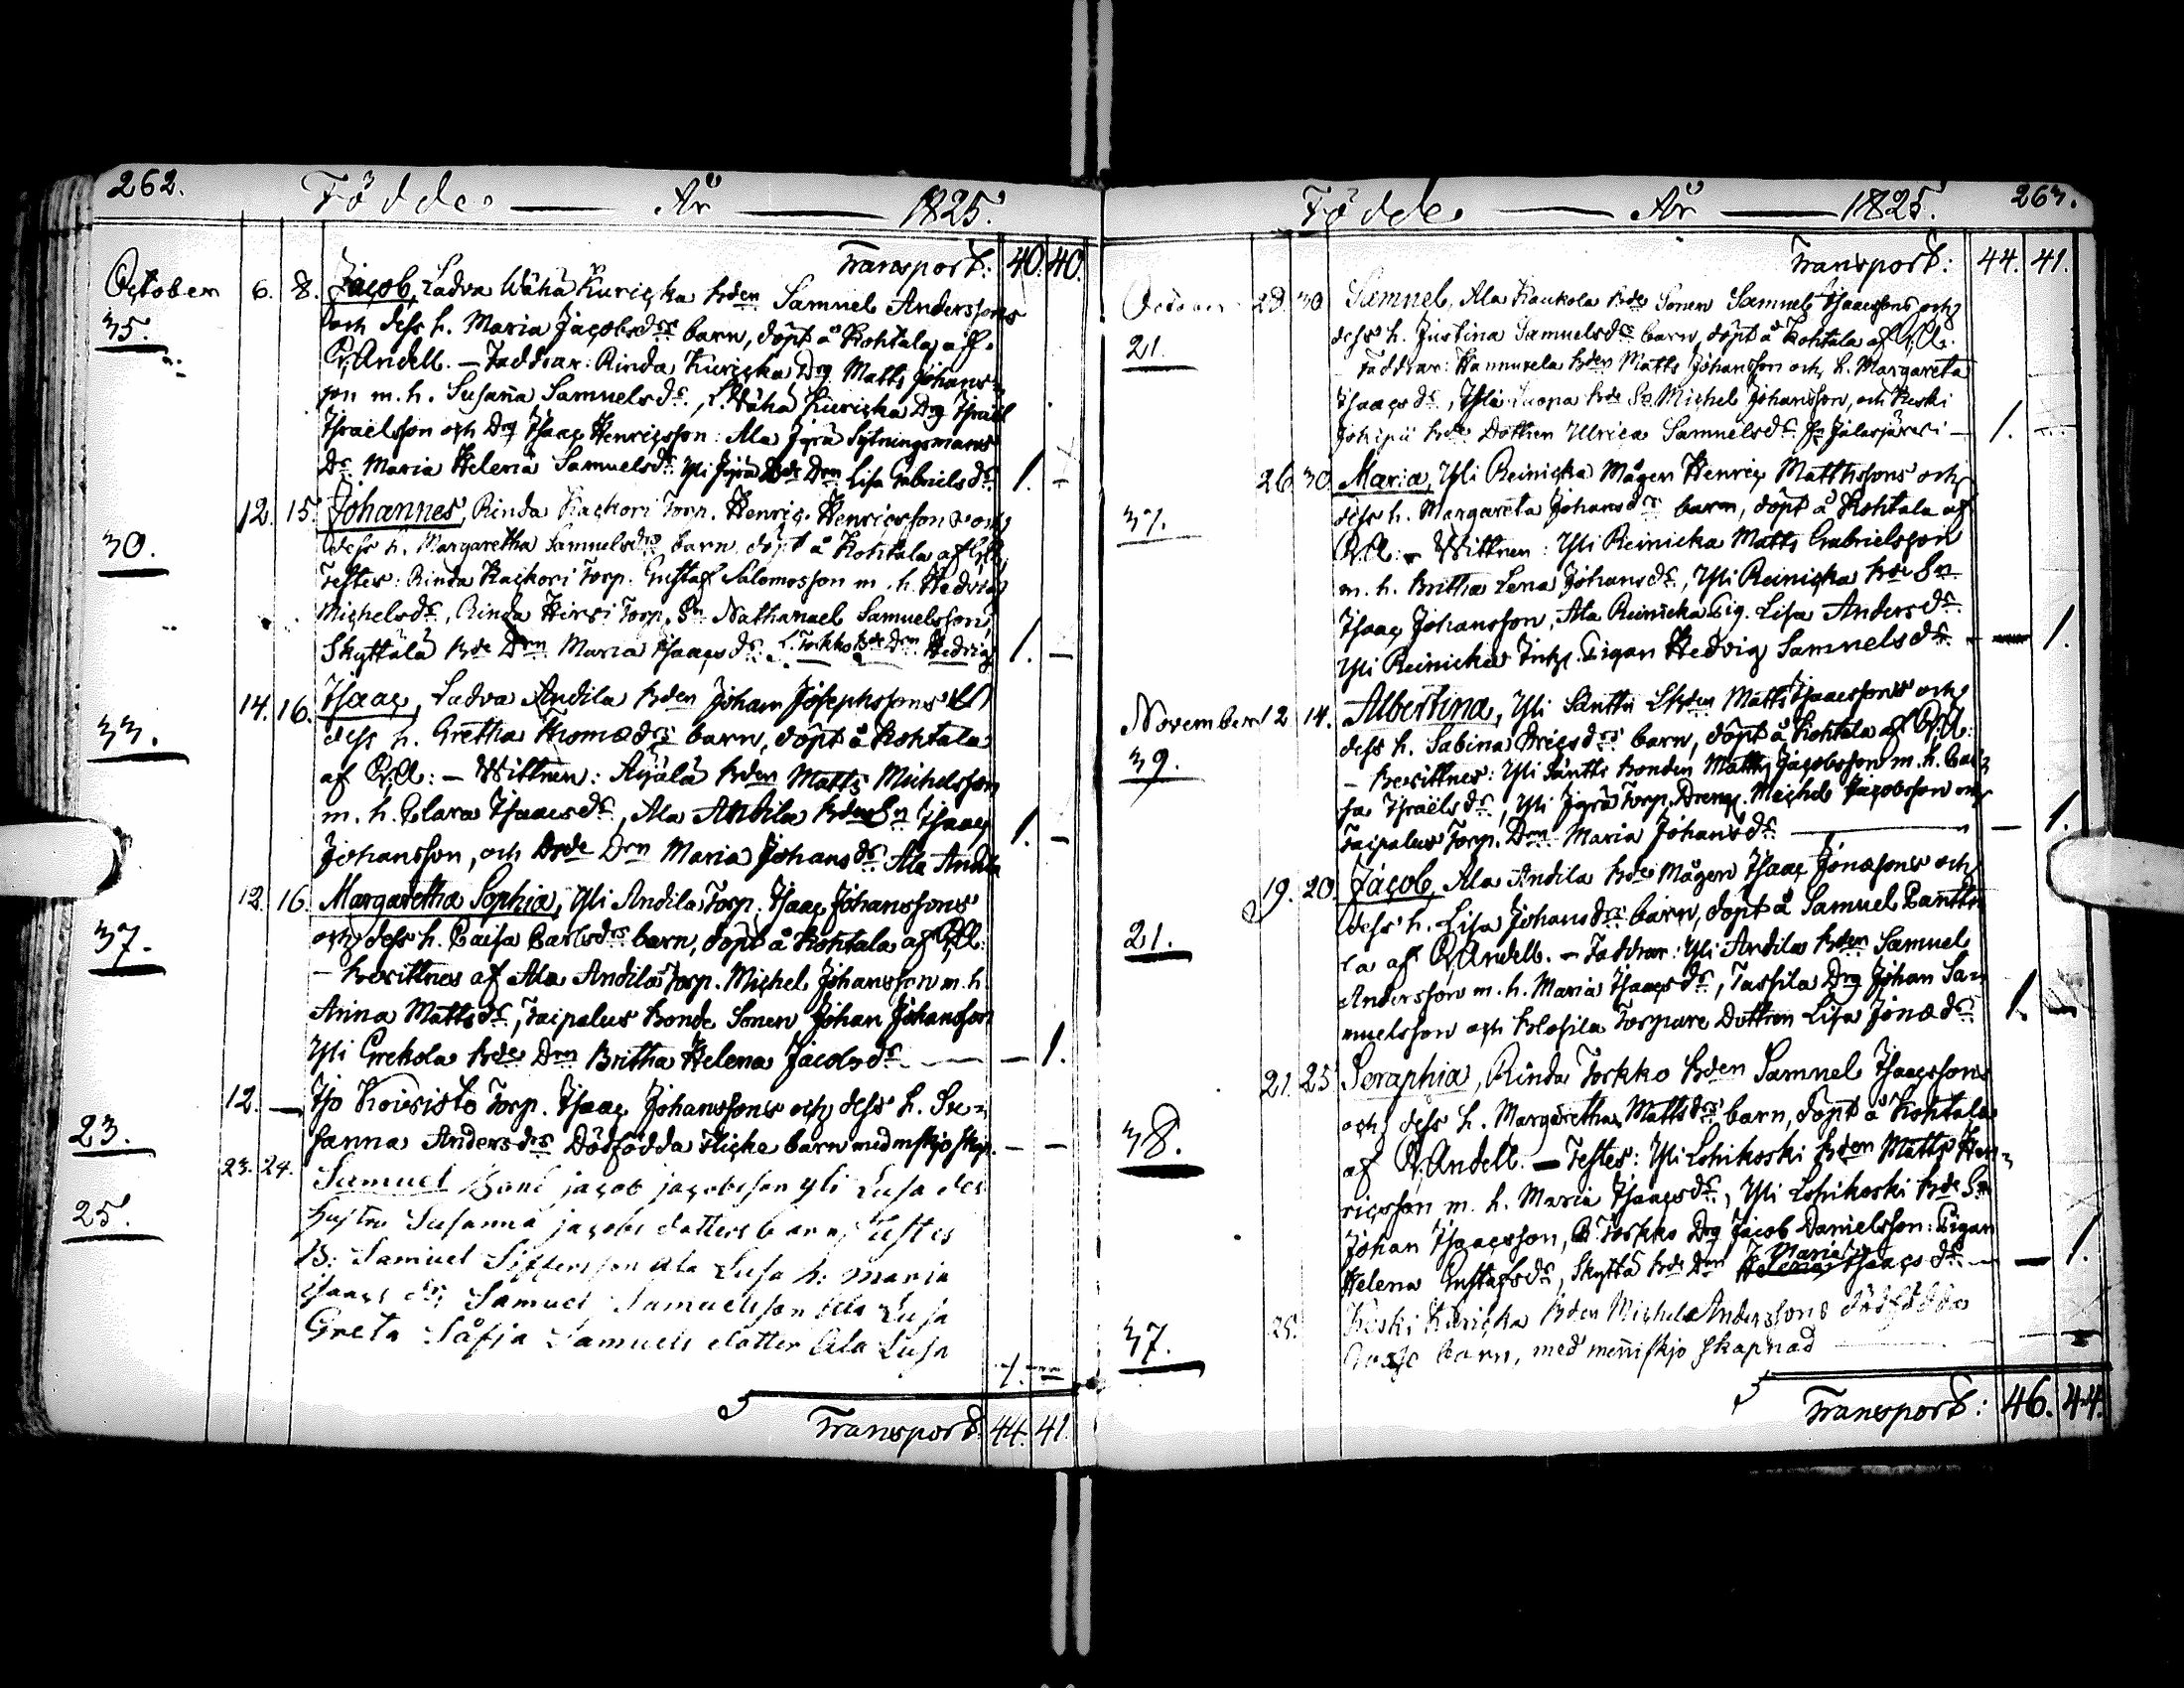 262.
Födde År 1825.
Transport: 40. 40.
October 6. 8. Jacob, Ladva Wähä Kuricka Bden Samuel Anderssons
35. och dess h. Maria Jacobsdrs barn, döpt å Kohtala af
Andell. – Faddrar: Rinda Kuricka Drg Matts Johans-
son m. h. Susaña Samuelsdr, L. Wähä Kuricka Drg Israel
Israelsson och Drg Isaac Henricsson: Ala Jyrä Sytningsmans
Dr Maria Helena Samuelsdr Yli Jyrä Bde Drn Lisa Gabrielsdr 1. –
12. 15. Johannes, Rinda Kackori Torp. Henric Henricssons och
30. dess h. Margaretha Samuelsdrs barn, döpt å Kohtala af
Testes: Rinda Kackori Torp. Gustaf Salomosson m. h. Hedvig
Michelsdr, Rinda Hirvi Torp. Sn Nathanael Samuelsson,
Skyttälä Bde Drn Maria Isaacsdr L. Torkko Bde Drn Hedvig 1. –
14. 16. Isaac, Ladva Andila Bden Johan Josephssons och
33. dess h. Gretha Thomædrs barn, döpt å Kohtala
af – Wittnen: Äijälä Bden Matts Michelsson
m. h. Clara Isaacsdr, Ala Andila Bden Sn Isaac
Johansson, och Bde Drn Maria Johansdr Ala Andila 1. –
12. 16. Margaretha Sophia, Yli Andila Torp. Isaac Johanssons
37. och dess h. Caisa Carlsdrs barn, döpt å Kohtala af
– Bevittnes af Ala Andila Torp. Michel Johansson m. h.
Anna Mattsdr, Taipalus Bonde Sonen Johan Johansson
Yli Grekola Bde Drn Britha Helena Jacobsdr – 1.
12. – Iso Koivisto Torp. Isaac Johanssons och dess h. Su-
23. sanna Andersdrs Dödfödda Flicke barn med mskjo skap. – –
23. 24. Samuel Bond jacob jacobsson yli Lusa des
25. hustru Susanna jacobs dotters barn Testes
B: Samuel Sifferson Ala Lusa h: maria
isaacs dr; Samuel Samuelsson Ala Lusa
Greta Såfja Samuels dotter Ala Lusa
1. –
Transport: 44. 41.
263.
Födde År 1825.
Transport: 44. 41.
October 28. 30. Samuel, Ala Kaukola Bde Sonen Samuel Isaacssons och
21. dess h. Justina Samuelsdrs barn, döpt å Kohtala af
Faddrar: Hannuxela Bden Matts Johansson och h. Margareta
Isaacsdr, Yli Luopa Bde Sn Michel Johansson, och Keski
Johipii Bde Dottren Ulrica Samuelsdr fr Jalasjärvi – 1. –
26. 30. Maria, Yli Reinicka Mågen Henric Matthssons och
37. dess h. Margareta Johansdrs barn, döpt å Kohtala af
– Wittnen: Yli Reinicka Matts Gabrielsson
m. h. Britha Lena Johansdr, Yli Reinicka Bde Sn
Isaac Johansson, Ala Reinicka Pig. Lisa Andersdr
Yli Reinicka Inhs. Pigan Hedvig Samuelsdr – 1.
November 12. 14. Albertina, Yli Säntti Bden Matts Isaacssons och
39. dess h. Sabina Ericsdrs barn, döpt å Kohtala af
– Bevittnes: Yli Säntti Bonden Matts Jacobsson m. h. Cai-
sa Israelsdr, Yli Jyrä Torp. Dreng. Michel Jacobsson och
Taipalus Torp. Drn Maria Johansdr – 1.
19. 20. Jacob, Ala Andila Bde Mågen Isaac Jonæsons och
21. dess h. Lisa Johansdrs barn, döpt å Samuel Panttu
la af Andell. – Faddrar: Yli Andila Bden Samuel
Andersson m. h. Maria Isaacsdr, Tassila Drg Johan Sa-
muelsson och Klosila Torpare Dottren Lisa Jonædr 1. –
21. 25. Seraphia, Rinda Torkko Bden Samuel Isaacssons
38. och dess h. Margaretha Mattsdrs barn, döpt å Kohtala
af Andell. – Testes: Yli Lohikoski Bden Matts Hen-
ricsson m. h. Maria Isaacsdr, Yli Lohikoski Bde Sn
Johan Isaacsson, R. Torkko Drg Jacob Danielsson: Pigan
Helena Gustafsdr, Skyttä Bde Drn Maria Isaacsdr – 1.
25. Keski Kuricka Bden Michel Anderssons dödfödda
37. Gosse barn, med menniskjo skapnad – –
Transport: 46. 44.